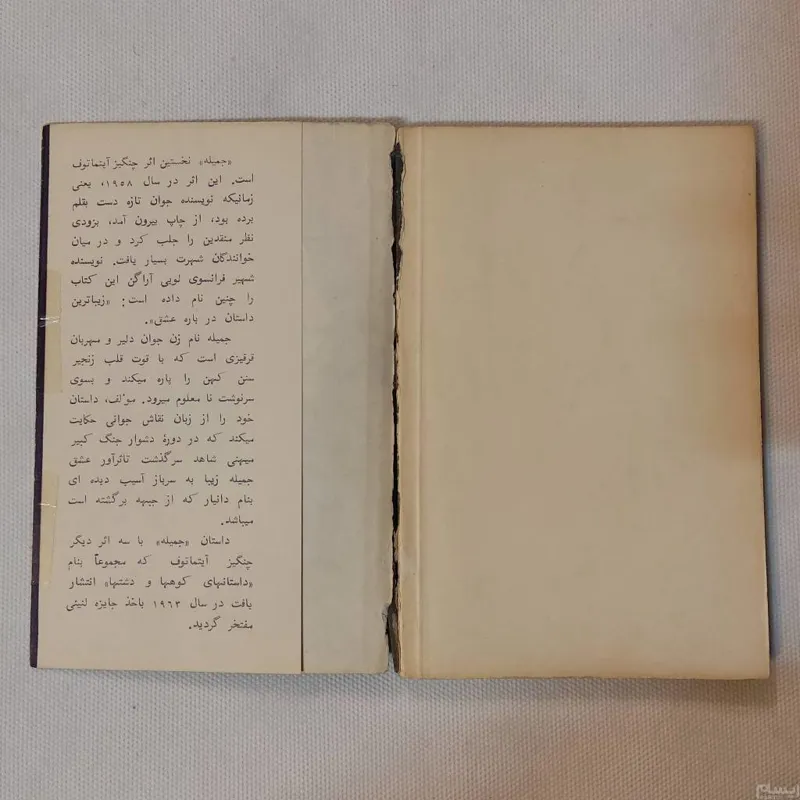 «جمیله» نخستین اثر چنگیز آیتماتوف
است. این اثر در سال ۱۹۵۸، یعنی
زمانیکه نویسنده جوان تازه دست بقلم
برده بود، از چاپ بیرون آمد، بزودی
نظر منقدین را جلب کرد و در میان
خوانندگان شهرت بسیار یافت. نویسنده
شهیر فرانسوی لویی آراگن این کتاب
را چنین نام داده است: «زیباترین
داستان در باره عشق».
جمیله نام زن جوان دلیر و مهربان
قرقیزی است که با قوت قلب زنجیر
سنن کهن را پاره میکند و بسوی
سرنوشت نا معلوم میرود. مؤلف، داستان
خود را از زبان نقاش جوانی حکایت
میکند که در دورهٔ دشوار جنگ کبیر
میهنی شاهد سرگذشت تاثرآور عشق
جمیله زیبا به سرباز آسیب دیده ای
بنام دانیار که از جبهه برگشته است
میباشد.
داستان «جمیله» با سه اثر دیگر
چنگیز آیتماتوف که مجموعاً بنام
«داستانهای کوهها و دشتها» انتشار
یافت در سال ۱۹۶۳ باخذ جایزه لنینی
مفتخر گردید.
ایسام